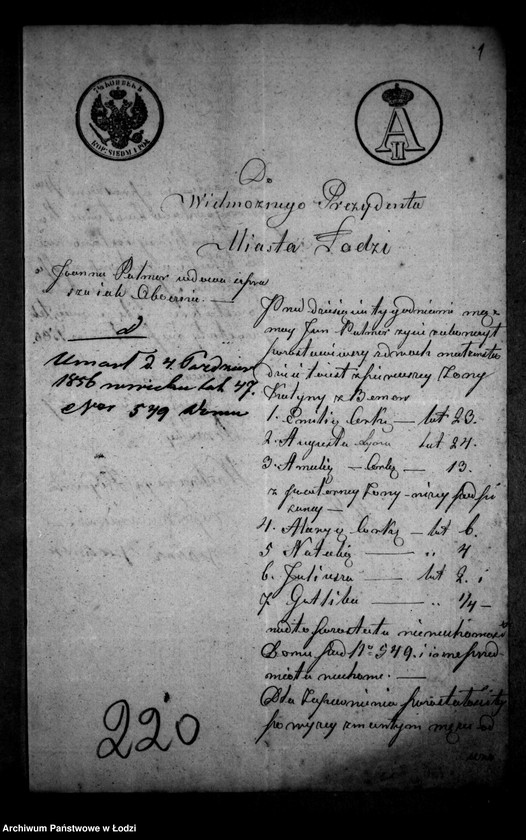 1
7½ КОПѢЕКЪ
KOP: SIEDM I PÓŁ
A II
Do
Widmożnego Prezydenta
Miasta Łodzi
Joanna Palmer wdowa
szu iak Obecnie. —
Umarł d. 4 Paździer
1856 w wieku lat 47.
Nor 579 Domu
Przed dziesiciu tygodniami mąż
moy Jan Palmer życie zakonczył
pozostawiwszy z dwoch małżeństw
dzieci iest z pierwszey Żony
Justyny z Bemow
1. Emilię Corkę — lat 23.
2. Augusta Syna lat 24.
3. Amalię — Corkę — 13.
z powtorney Żony — niżey podpi
saney —
4. Maryę Corkę — lat 6.
5 Natalię — " 4
6. Juliusza — lat 2. i
7 Gottliba — " ¼ —
nadto pozostała nieruchomość
Domu pod No 579. i inne przed
mioty ruchome. —
Dla zapewnienia pozostałości
powyzey zmarłym mężu od
220
Archiwum Państwowe w Łodzi